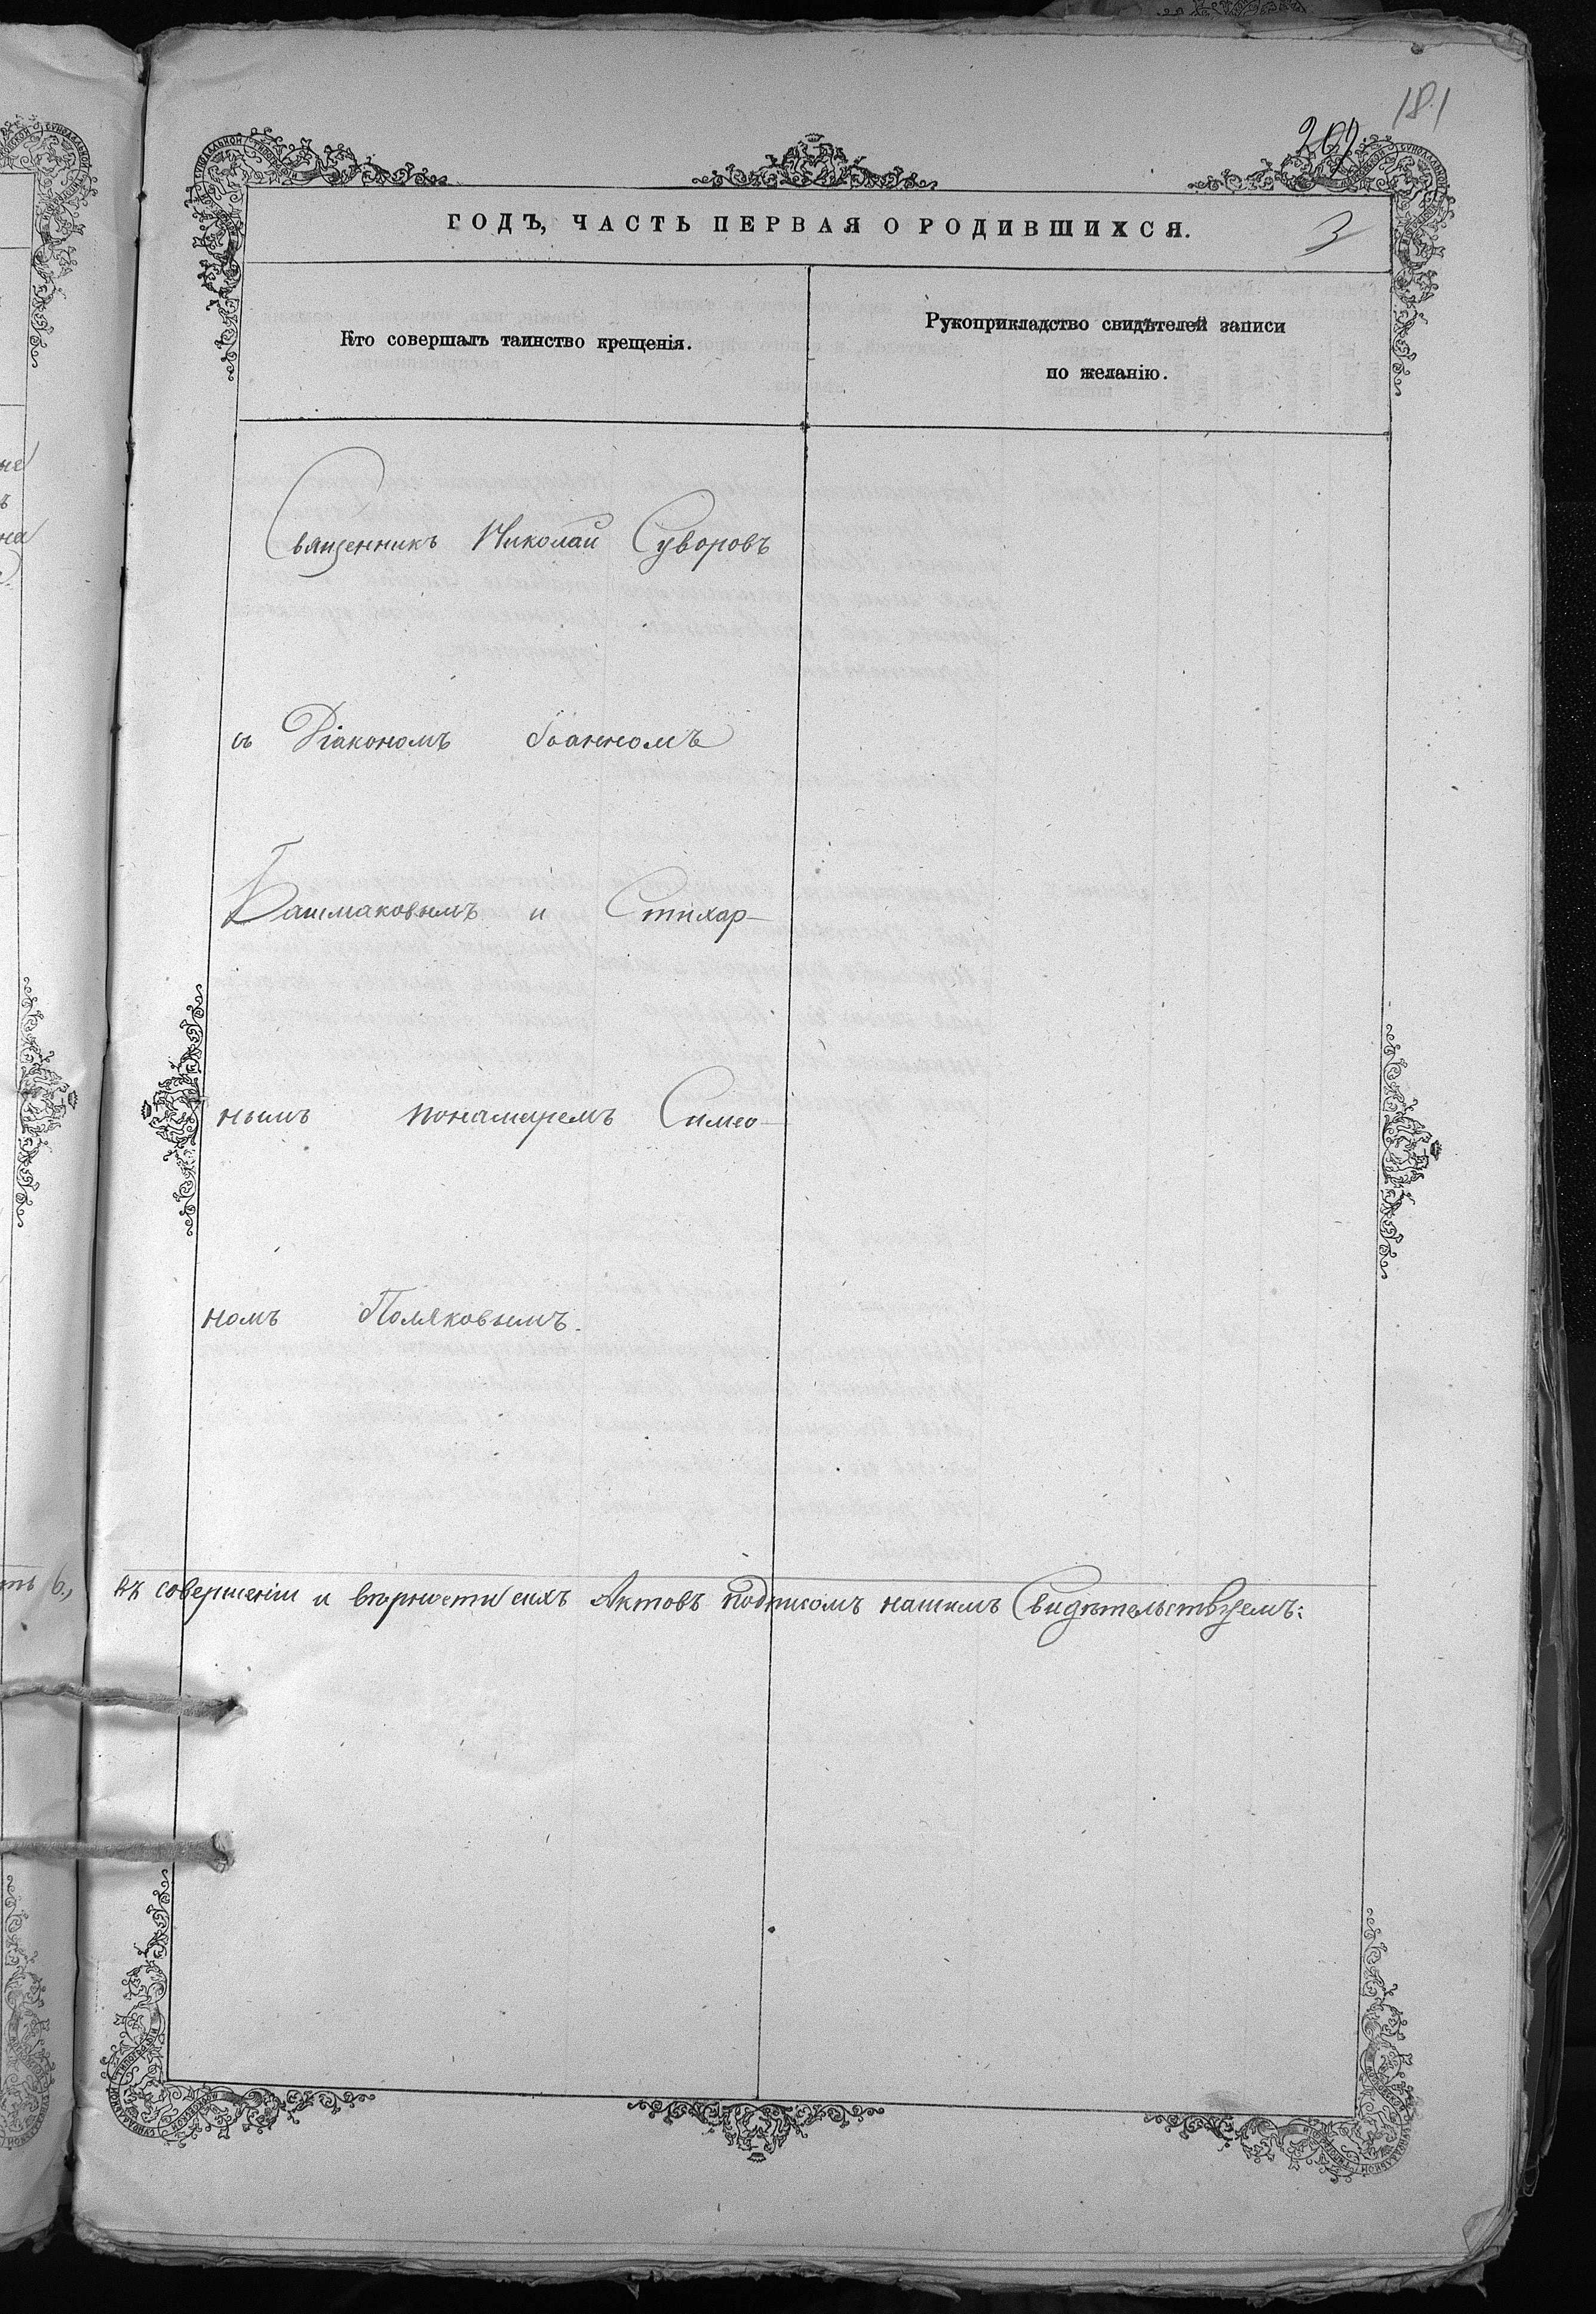 181
202
ГОДЪ, ЧАСТЬ ПЕРВАЯ О РОДИВШИХСЯ.
3
Кто совершалъ таинство крещенія.
Рукоприкладство свидѣтелей записи
по желанію.
Священникъ Николай Суворовъ
съ Діакономъ Іоанномъ
Башмаковымъ и Стихар-
нымъ понамаремъ Симео-
номъ Поляковымъ.
въ совершеніи и вѣрности сихъ Актовъ подписомъ нашимъ Свидѣтельствуемъ: